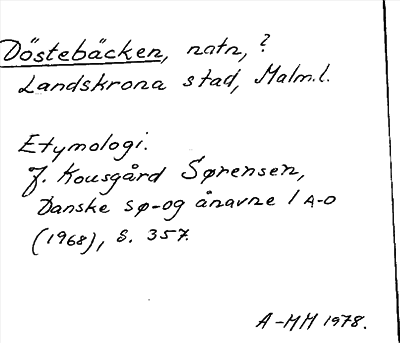 Döstebäcken, natn, ?
Landskrona stad, Malm.l.
Etymologi.
J. Kousgård Sørensen,
Danske sø-og ånavne 1 A-O
(1968), S. 357.
A-MM 1978.